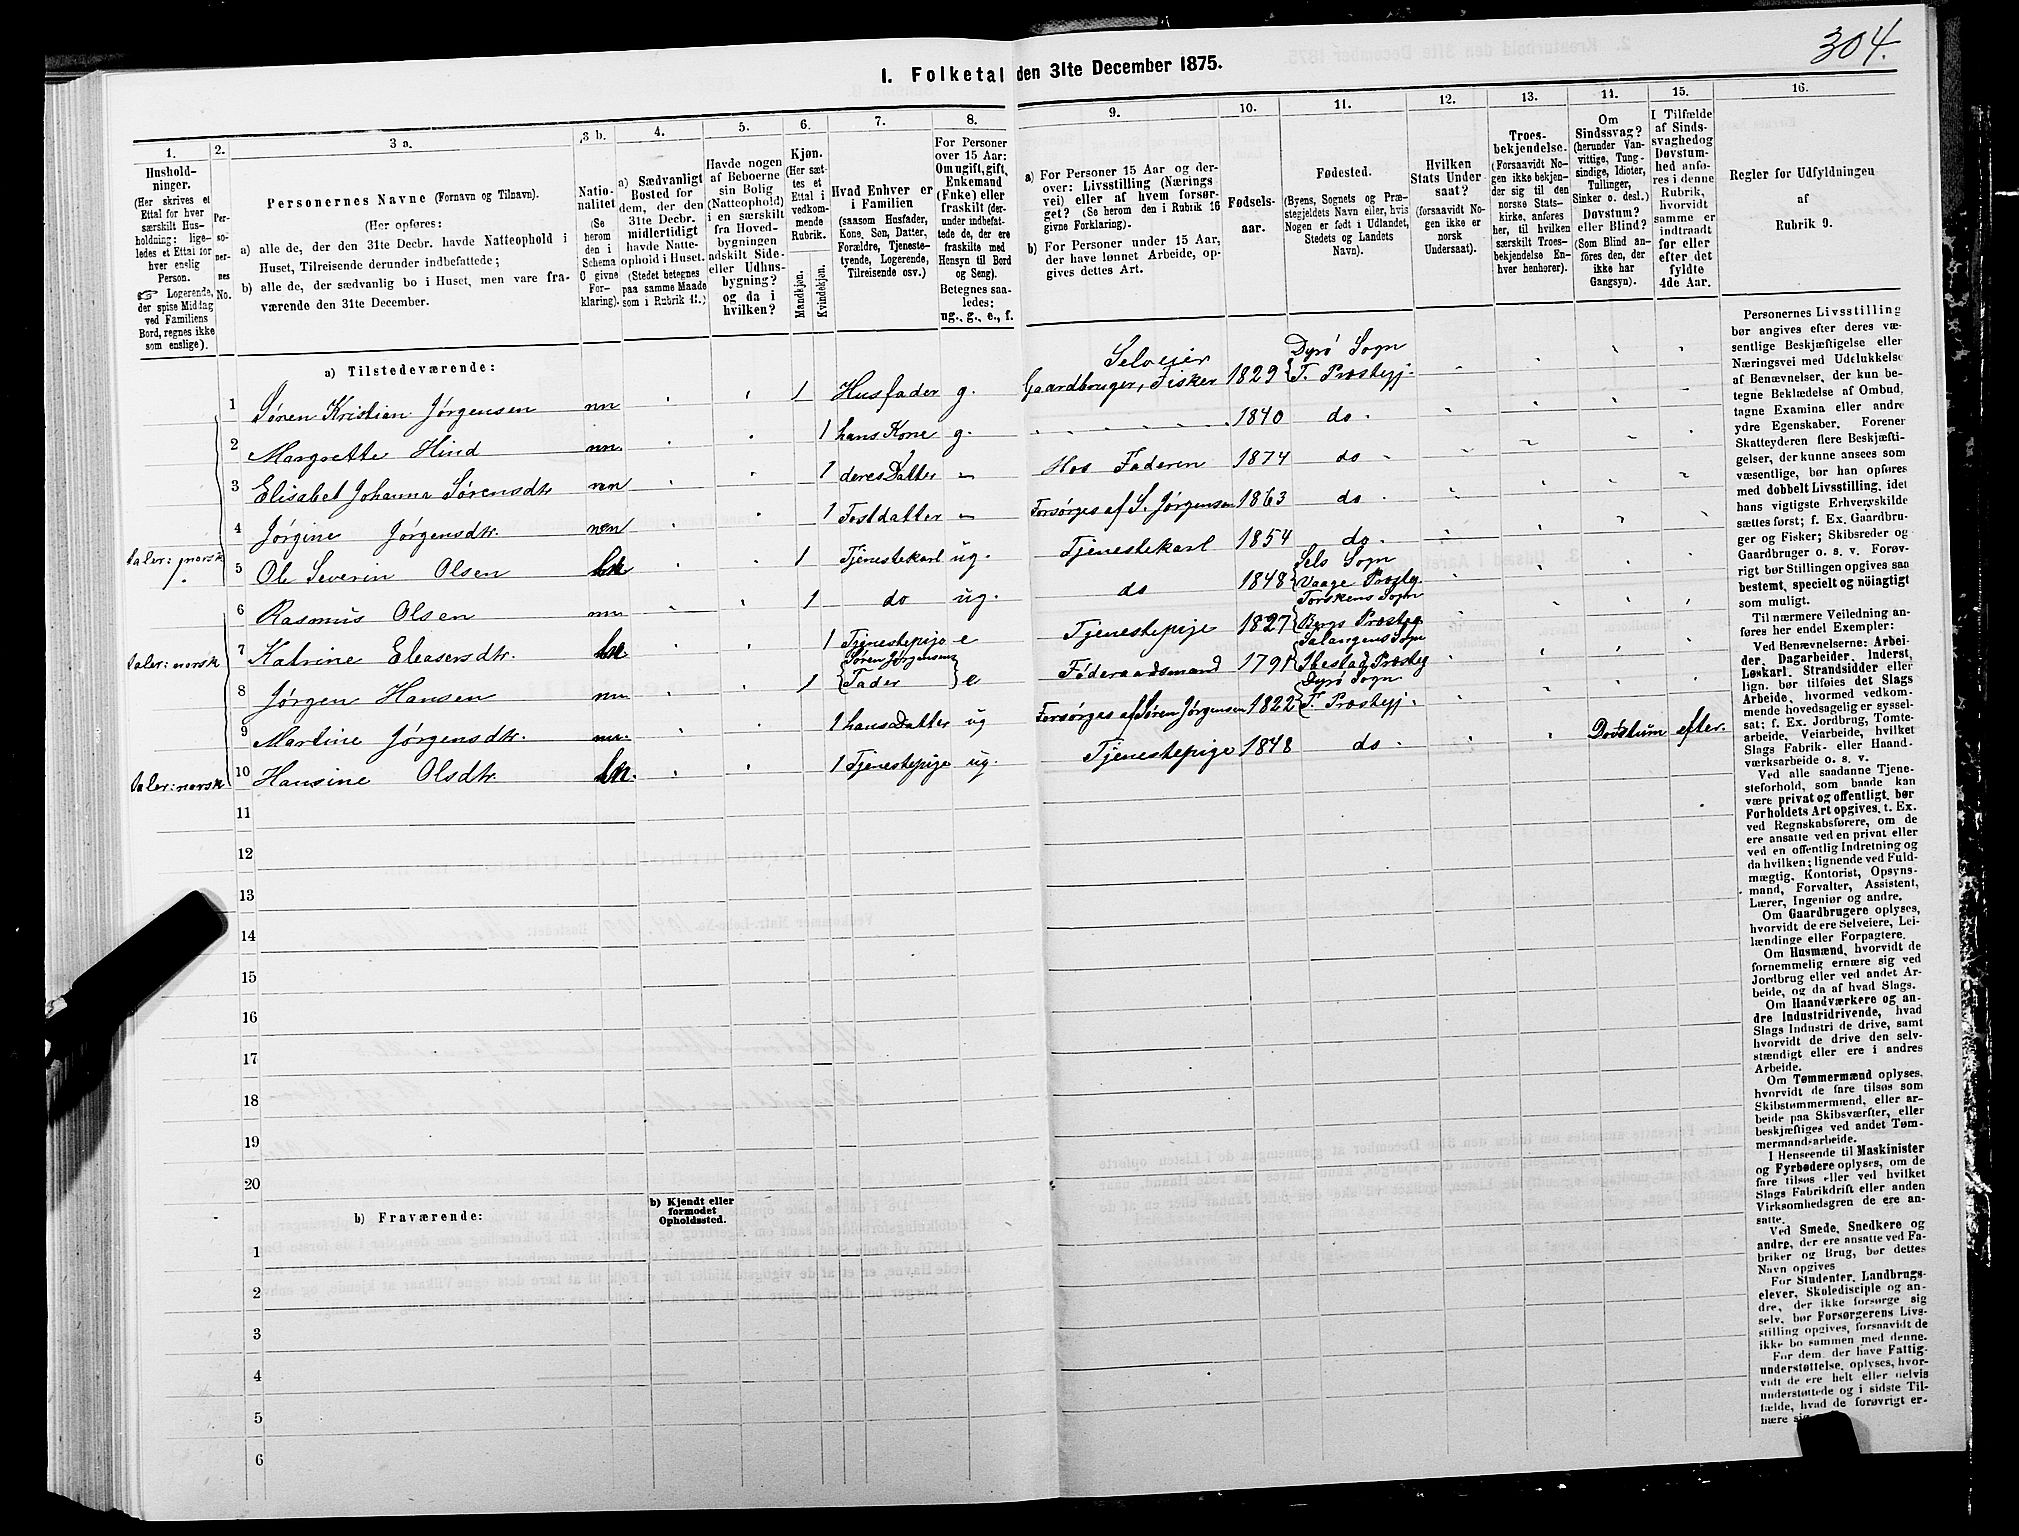 304.
1. Folketal den 31te December 1875.
1. Husholdninger. (Her skrives et Ettal for hver særskilt Husholdning: ligeledes et Ettal for hver enslig Person. Logerende, der spise Middag ved Familiens Bord, regnes ikke som enslige).
2. Personernes No.
3 a. Personernes Navne (Fornavn og Tilnavn).
(Her opføres:
a) alle de, der den 31te Decbr. havde Natteophold i Huset, Tilreisende derunder indbefattede;
b) alle de, der sædvanlig bo i Huset, men vare fraværende den 31te December.
3 b. Nationalitet (Se herom den i Schema C givne Forklaring).
4. a) Sædvanligt Bosted for dem, der den 31te Decbr. midlertidigt havde Natteophold i Huset. (Stedet betegnes paa samme Maade som i Rubrik 11.)
5. Havde nogen af Beboerne sin Bolig (Natteophold) i en særskilt fra Hovedbygningen adskilt Side- eller Udhusbygning? og da i hvilken?
6. Kjøn. (Her sættes et Ettal i vedkommende Rubrik.
Mandkjøn.
Kvindekjøn.
7. Hvad Enhver er i Familien (saasom Husfader, Kone, Søn, Datter, Forældre, Tjenestetyende, Logerende, Tilreisende osv.)
8. For Personer over 15 Aar: Om ugift, gift, Enkemand (Enke) eller fraskilt (derunder indbefattede de, der ere fraskilte med Hensyn til Bord og Seng). Betegnes saaledes: ug., g., e., f.
9. a) For Personer 15 Aar og derover: Livsstilling (Næringsvei) eller af hvem forsørget? (Se herom den i Rubrik 16 givne Forklaring).
b) For Personer under 15 Aar, der have lønnet Arbeide, opgives dettes Art.
10. Fødselsaar.
11. Fødested. (Byens, Sognets og Præstegjeldets Navn eller, hvis Nogen er født i Udlandet, Stedets og Landets Navn).
12. Hvilken Stats Undersaat? (forsaavidt Nogen ikke er norsk Undersaat).
13. Troesbekjendelse. (Forsaavidt Nogen ikke bekjender sig til den norske Statskirke, anføres her, til hvilken særskilt Troesbekjendelse Enhver henhorer).
14. Om Sindssvag? (herunder Vanvittige, Tungsindige, Idioter, Tullinger, Sinker o. desl.) Døvstum? eller Blind? (Som Blind anføres den, der ikke har Gangsyn).
15. I Tilfælde af Sindssvaghed og Døvstumhed anføres i denne Rubrik, hvorvidt samme er indtraadt før eller efter det fyldte 4de Aar.
16. Regler for Udfyldningen af Rubrik 9.
a) Tilstedeværende:
1 Søren Kristian Jørgensen nn 1 Husfader g. Selveier Gaardbruger, Fisker 1829 Dyrø Sogn T. Præstegj.
2 Margrette Hind nn. 1 hans Kone g. 1840 do
3 Elisabet Johanna Sørensdtr nn 1 deres Datter Hos Faderen 1874 do
4 Jørgine Jørgensdtr. nn 1 Fostdatter Forsørges af S. Jørgensen 1863 do
taler: norsk
5 Ole Severin Olsen 1 Tjenestekarl ug. Tjenestekarl 1854 do.
6 Rasmus Olsen nn 1 do ug. do 1848 Sels Sogn Vaage Præsteg
taler: norsk
7 Katrine Eleasersdtr. 1 Tjenestepige e Tjenestepige 1827 Torskens Sogn Bergs Præsteg
8 Jørgen Hansen nn 1 Søren Jørgensens Fader e Føderaadsmand 1791 Salangens Sogn Ibestad Præsteg
9 Martine Jørgensdtr. nn. 1 hans Datter ug Forsørges af Søren Jørgensen 1822 Dyrø Sogn T. Præstegj. Døvstum efter.
taler: norsk
10 Hansine Olsdtr. 1 Tjenestepige ug. Tjenestepige 1848 do
11
12
13
14
15
16
17
18
19
20
b) Fraværende:
b) Kjendt eller formodet Opholdssted.
1
2
3
4
5
6
Personernes Livsstilling
bør angives efter deres væ-
sentlige Beskjæftigelse eller
Næringsvei med Udelukkelse
af Benævnelser, der kun be-
tegne Beklædelse af Ombud,
tagne Examina eller andre
ydre Egenskaber. Forener
Skatteyderen flere Beskjæfti-
gelser, der kunne ansees som
væsentlige, bør han opføres
med dobbelt Livsstilling, idet
hans vigtigste Erhvervskilde
sættes først; f. Ex. Gaardbru-
ger og Fisker; Skibsreder og
Gaardbruger o. s. v. Forøv-
rigt bør Stillingen opgives saa
bestemt, specielt og nöiagtigt
som muligt.
Til nærmere Veiledning an-
føres her endel Exempler:
Ved Benævnelserne: Arbei-
der, Dagarbeider, Inderst,
Løskarl, Strandsidder eller
lign. bør tilføies det Slags
Arbeide, hvormed vedkom-
mende hovedsagelig er syssel-
sat; f. Ex. Jordbrug, Tomte-
arbeide, Veiarbeide, hvilket
Slags Fabrik- eller Haand-
værksarbeide o. s. v.
Ved alle saadanne Tjene-
steforhold, som baade kan
være privat og offentligt, bør
Forholdets Art opgives, t. Ex.
ved Regnskabsførere, om de
ere ansatte ved en privat eller
ved en offentlig Indretning og
da hvilken; lignende ved Fuld-
mægtig, Kontorist, Opsyns-
mand, Forvalter, Assistent,
Lærer, Ingeniør og andre.
Om Gaardbrugere oplyses,
hvorvidt de ere Selveiere, Lei-
lændinge eller Forpagtere.
Om Husmænd, hvorvidt de
fornemmelig ernære sig ved
Jordbrug eller ved andet Ar-
beide, og da af hvad Slags.
Om Haandværkere og an-
dre Industridrivende, hvad
Slags Industri de drive, samt
hvorvidt de drive den selv-
stændigt eller ere i andres
Arbeide.
Om Tømmermænd oplyses,
hvorvidt de fare tilsøs som
Skibstømmermænd, eller ar-
beide paa Skibsværfter, eller
beskjæftiges ved andet Tøm-
mermandsarbeide.
I Henseende til Maskinister
og Fyrbødere oplyses, om de
fare tilsøs eller ved hvilket
Slags Fabrikdrift eller anden
Virksomhedsgren de ere an-
satte.
Ved Smede, Snedkere og
andre, der ere ansatte ved Fa-
briker og Brug, bør dettes
Navn opgives
For Studenter, Landbrugs-
elever, Skoledisciple og an-
dre, der ikke forsørge sig
selv, bør Forsørgerens Livs-
stilling opgives, forsaavidt de
ikke bo sammen med denne.
For dem, der have Fattig-
understøttelse, oplyses, hvor-
vidt de ere helt eller delvis
understøttede og i sidste Til-
fælde, hvad de forøvrigt er-
nære sig